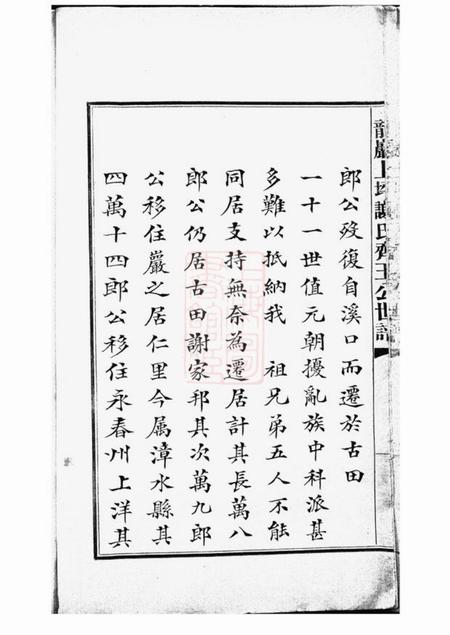 龍巖上坪謝氏齊王公世譜
郎公歿復自溪口而遷於古田
一十一世值元朝擾亂族中科派甚
多難以抵納我 祖兄弟五人不能
同居支持無奈為遷居計其長萬八
郎公仍居古田謝家邦其次萬九郎
公移住巖之居仁里今属漳水縣其
四萬十四郎公移住永春州上洋其